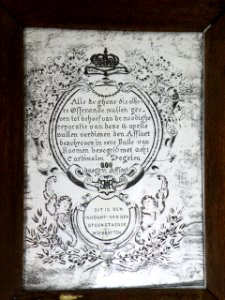 Alle de ghene die alhier
Offerande sullen ge-
ven tot behoef van de noodighe
reparatie van deze Capelle
sullen verdienen den Afflaet
beschreven in eene Bulle van
Roomen besegeld met acht
Cardinalen Degelen
800
daegen Afflaet
DIT IS DEN
VAN DEN